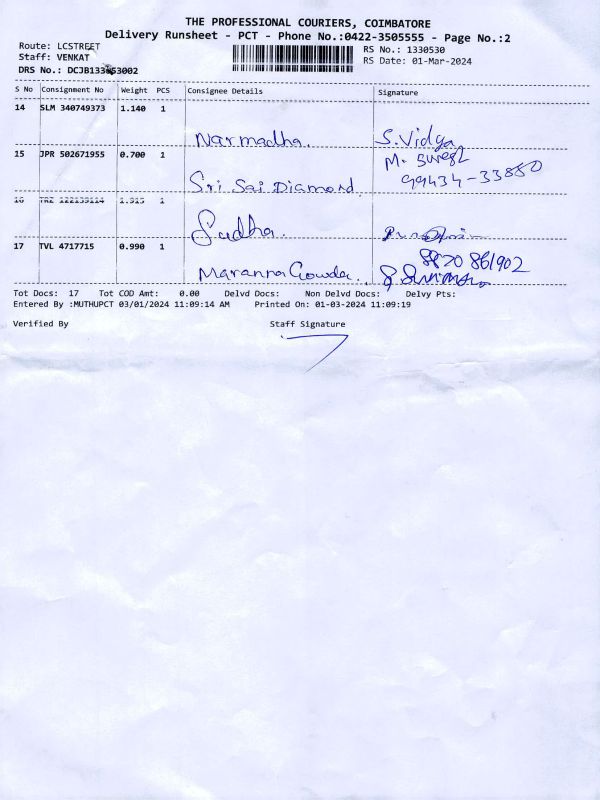 THE PROFESSIONAL COURIERS, COIMBATORE
Delivery Runsheet - PCT - Phone No.:0422-3505555 - Page No.:2
Route: LCSTREET
RS No.: 1330530
Staff: VENKAT
RS Date: 01-Mar-2024
DRS No.:
S No Consignment No Weight PCS Consignee Details Signature
14 SLM 340749373 1.140 1
Narmadha. S. Vidya
15 JPR 502671955 0.700 1 M.
Sri Sai Diamond. 99434-33850
16 1
Sudha.
17 TVL 4717715 0.990 1
8870 861902
Maranna Gowda.
Tot Docs: 17 Tot COD Amt: 0.00 Delvd Docs: Non Delvd Docs: Delvy Pts:
Entered By :MUTHUPCT 03/01/2024 11:09:14 AM Printed On: 01-03-2024 11:09:19
Verified By Staff Signature